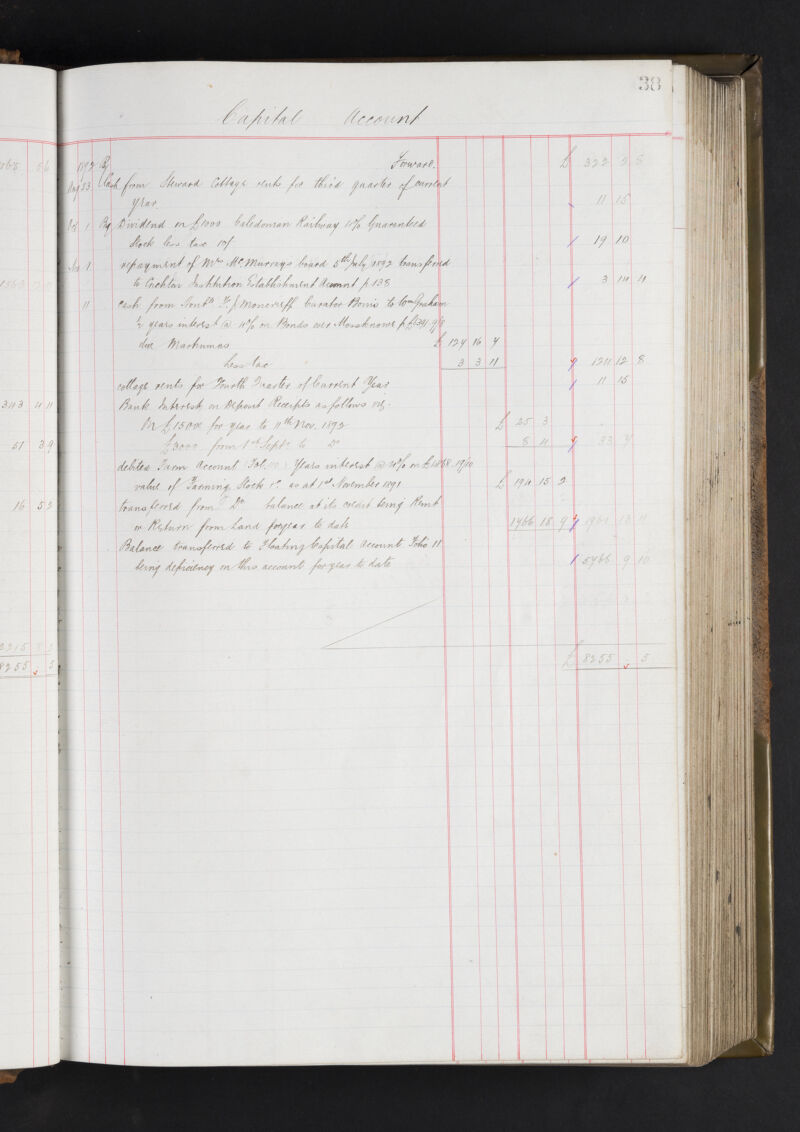 38
Capital Account
1892 By Forward. £ 322 2 5
Aug 23 Cash from Steward Cottage rents for third quarter of current
year 11 15
Oct 1 By Dividend on £1000 Caledonian Railway 4% Guaranteed
Stock less tax 10/ 19 10
Nov 1 repayment of Mrs McMurrays board 5th July 1892 transferred
to Crichton Institution Establishment Account p 138 3 14 4
11 cash from Moncrieff Curator Bonis to Wm Graham
½ years interest @ 4% on Bonds over
due Martinmas £ 124 16 7
Less tax 3 3 11 121 12 8
cottage rents for Fourth Quarter of Current Year 11 15
Bank Interest on Deposit Receipts as follows viz.
On £1500 for year to 11th Nov. 1892 £ 25 3
£2000 from 1st Sept. to Do 8 4 33 7
debited Farm Account Fol. Years interest @ on
value of Farming Stock &c as at 1st November 1891 £ 194 15 2
transferred from Do balance at its credit being Rent
or Return from Land for year to date 1766 18 9
Balance transferred to Floating Capital Account Folio 11
being deficiency on this account for year to date 5766 9 10
£ 8255 . 5
51 3 9
16 5 2
8255 . 5